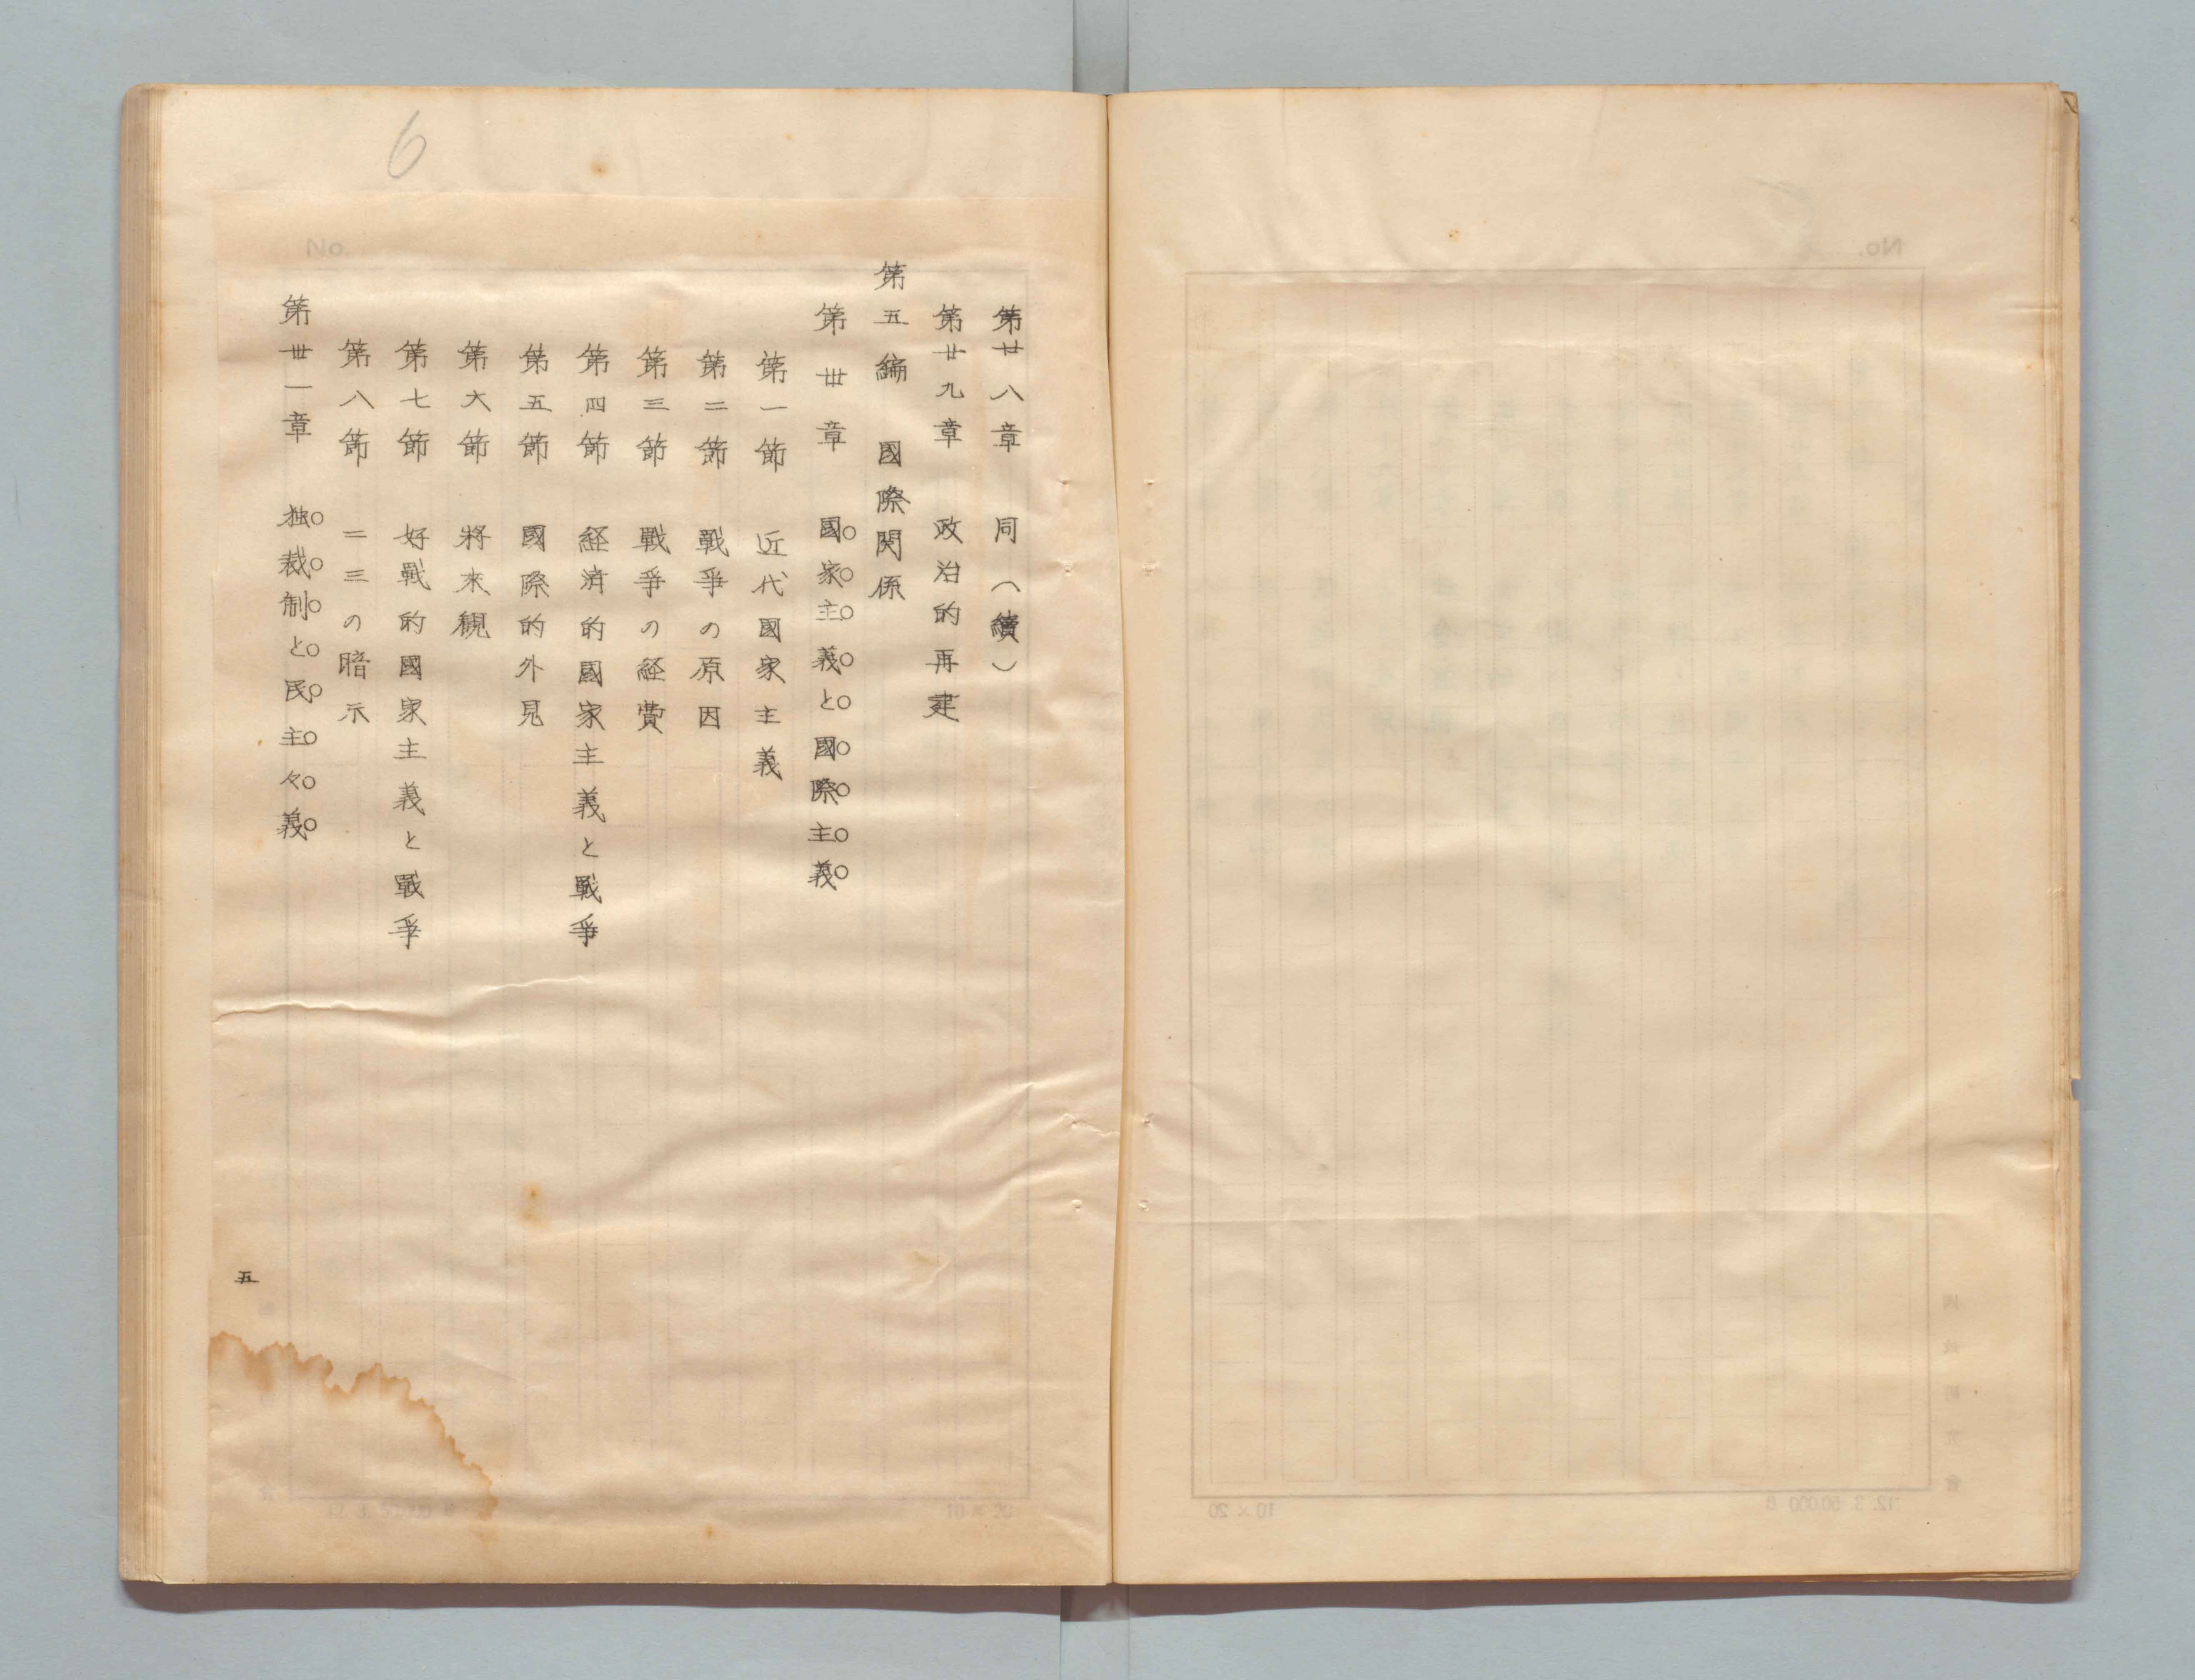 6
第廿八章 同(續)
第廿九章 政治的再建
第五編 國際関係
第卅章 國家主義と國際主義
第一節 近代國家主義
第二節 戦爭の原因
第三節 戰爭の経費
第四節 経済的國家主義と戦爭
第五節 國際的外見
第六節 將來観
第七節 好戰的國家主義と戰爭
第八節 二三の暗示
第卅一章 独裁制と民主々義
五
No.
10 × 20
12. 3. 50.000